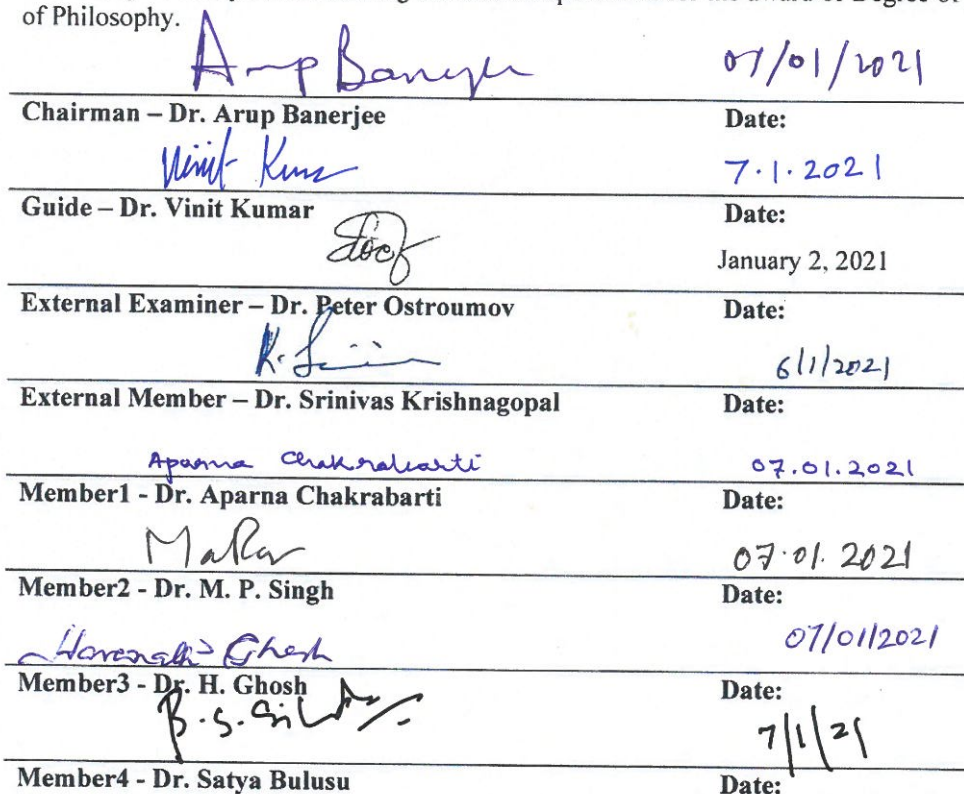 of Philosophy.
Arup Banerjee 07/01/2021
Chairman – Dr. Arup Banerjee Date:
Vinit Kumar 7.1.2021
Guide – Dr. Vinit Kumar Date:
January 2, 2021
External Examiner – Dr. Peter Ostroumov Date:
K. 6/1/2021
External Member – Dr. Srinivas Krishnagopal Date:
Aparna Chakrabarti 07.01.2021
Member1 - Dr. Aparna Chakrabarti Date:
07.01.2021
Member2 - Dr. M. P. Singh Date:
Ghosh 07/01/2021
Member3 - Dr. H. Ghosh Date:
B.S. 7/1/21
Member4 - Dr. Satya Bulusu Date: